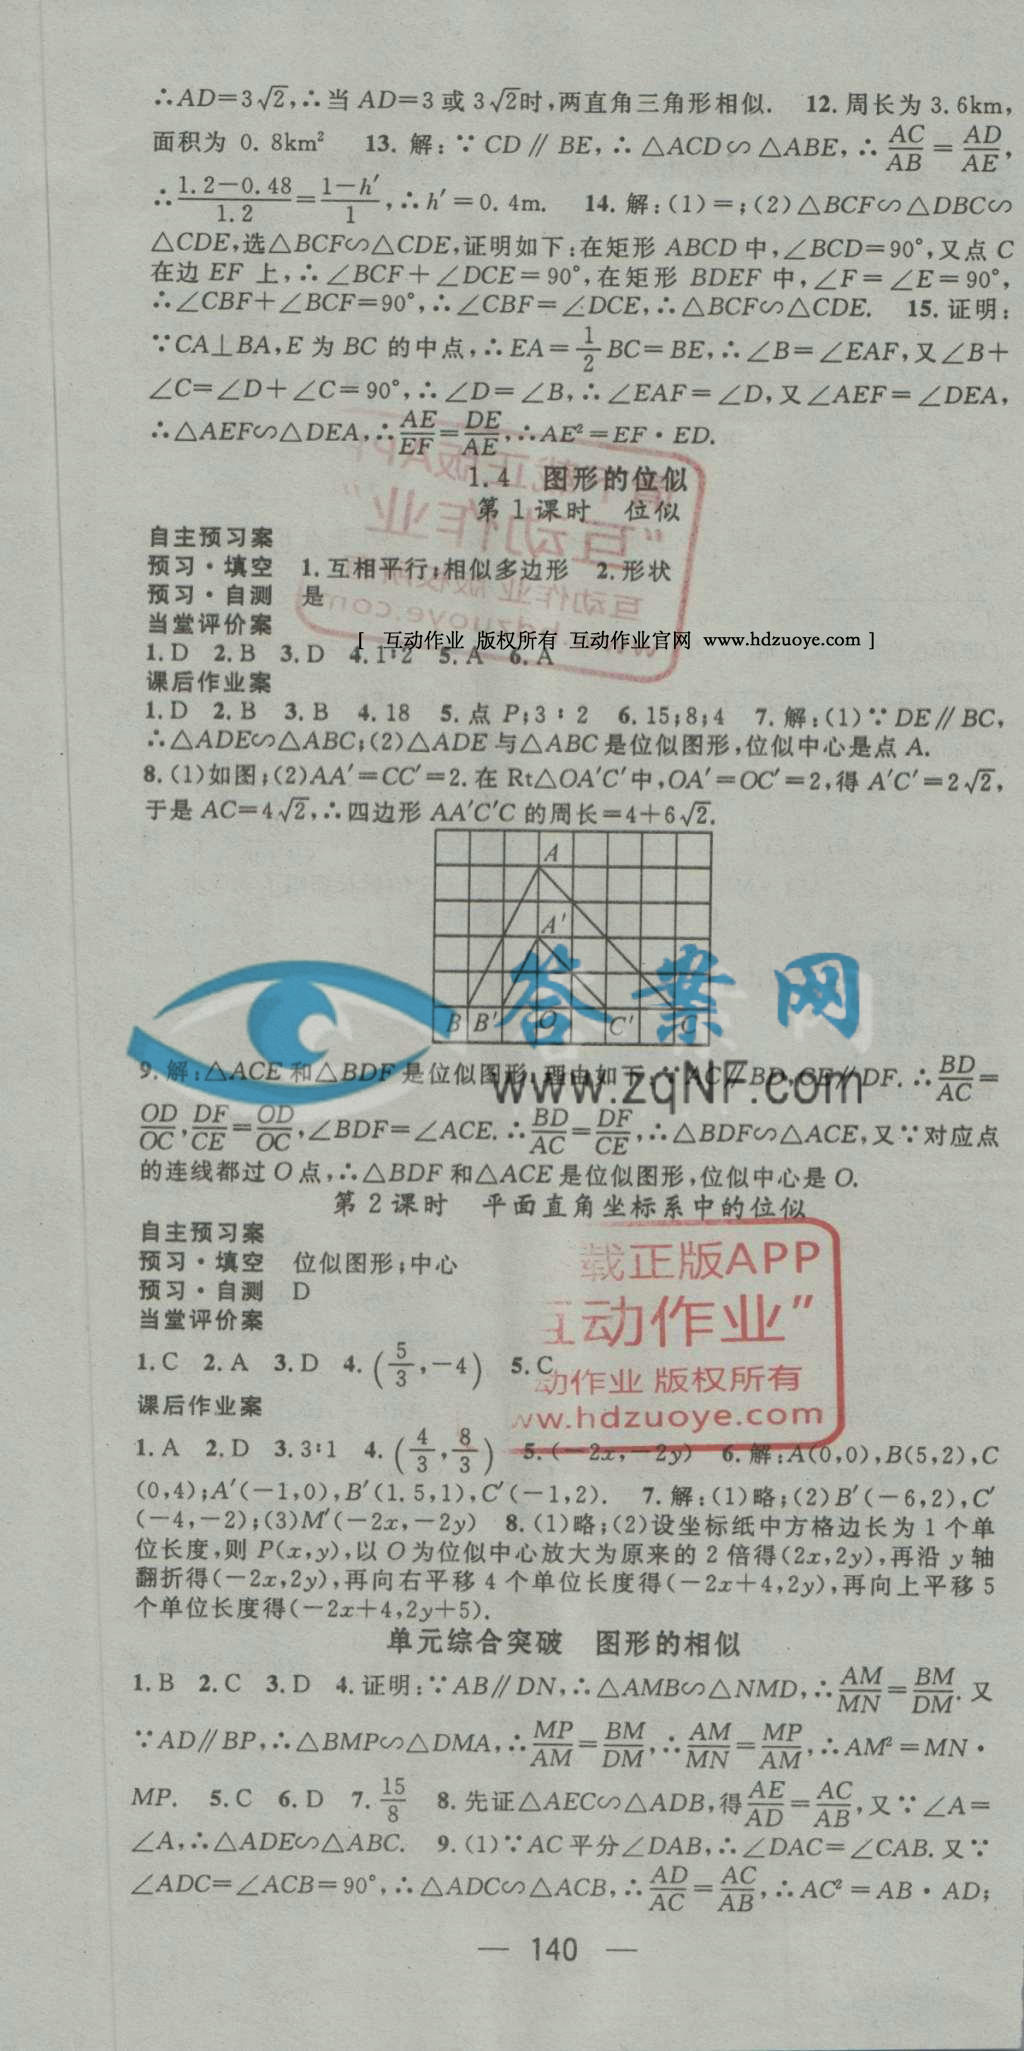 ∴AD=3√2,∴当 AD=3 或 3√2时,两直角三角形相似.　12.周长为 3.6km,
面积为 0.8km²　13.解:∵CD∥BE,∴△ACD∽△ABE,∴AC/AB=AD/AE,
∴(1.2-0.48)/1.2=(1-h′)/1,∴h′=0.4m.　14.解:(1)=;(2)△BCF∽△DBC∽
△CDE,选△BCF∽△CDE,证明如下:在矩形 ABCD 中,∠BCD=90°,又点 C
在边 EF 上,∴∠BCF+∠DCE=90°,在矩形 BDEF 中,∠F=∠E=90°,
∴∠CBF+∠BCF=90°,∴∠CBF=∠DCE,∴△BCF∽△CDE.　15.证明:
∵CA⊥BA,E 为 BC 的中点,∴EA=1/2BC=BE,∴∠B=∠EAF,又∠B+
∠C=∠D+∠C=90°,∴∠D=∠B,∴∠EAF=∠D,又∠AEF=∠DEA,
∴△AEF∽△DEA,∴AE/EF=DE/AE,∴AE²=EF·ED.
1.4　图形的位似
第1课时　位似
自主预习案
预习·填空　1.互相平行;相似多边形　2.形状
预习·自测　是
当堂评价案
[　互动作业 版权所有 互动作业官网 www.hdzuoye.com ]
1.D　2.B　3.D　4.1∶2　5.A　6.A
课后作业案
1.D　2.B　3.B　4.18　5.点 P;3∶2　6.15;8;4　7.解:(1)∵DE∥BC,
∴△ADE∽△ABC;(2)△ADE 与△ABC 是位似图形,位似中心是点 A.
8.(1)如图;(2)AA′=CC′=2.在 Rt△OA′C′中,OA′=OC′=2,得 A′C′=2√2,
于是 AC=4√2,∴四边形 AA′C′C 的周长=4+6√2.
A
A′
B B′ O C′ C
答案网
www.zqNF.com
9.解:△ACE 和△BDF 是位似图形,理由如下:∵AC∥BD,CE∥DF.∴BD/AC=
OD/OC,DF/CE=OD/OC,∠BDF=∠ACE.∴BD/AC=DF/CE,∴△BDF∽△ACE,又∵对应点
的连线都过 O 点,∴△BDF 和△ACE 是位似图形,位似中心是 O.
第2课时　平面直角坐标系中的位似
自主预习案
预习·填空　位似图形;中心
预习·自测　D
当堂评价案
1.C　2.A　3.D　4.(5/3,-4)　5.C
载正版APP
互动作业”
动作业 版权所有
www.hdzuoye.com
课后作业案
1.A　2.D　3.3∶1　4.(4/3,8/3)　5.(-2x,-2y)　6.解:A(0,0),B(5,2),C
(0,4);A′(-1,0),B′(1.5,1),C′(-1,2).　7.解:(1)略;(2)B′(-6,2),C′
(-4,-2);(3)M′(-2x,-2y)　8.(1)略;(2)设坐标纸中方格边长为 1 个单
位长度,则 P(x,y),以 O为位似中心放大为原来的 2 倍得(2x,2y),再沿 y 轴
翻折得(-2x,2y),再向右平移 4 个单位长度得(-2x+4,2y),再向上平移 5
个单位长度得(-2x+4,2y+5).
单元综合突破　图形的相似
1.B　2.C　3.D　4.证明:∵AB∥DN,∴△AMB∽△NMD,∴AM/MN=BM/DM.又
∵AD∥BP,∴△BMP∽△DMA,∴MP/AM=BM/DM,∴AM/MN=MP/AM,∴AM²=MN·
MP.　5.C　6.D　7.15/8　8.先证△AEC∽△ADB,得AE/AD=AC/AB,又∵∠A=
∠A,∴△ADE∽△ABC.　9.(1)∵AC平分∠DAB,∴∠DAC=∠CAB.又∵
∠ADC=∠ACB=90°,∴△ADC∽△ACB,∴AD/AC=AC/AB,∴AC²=AB·AD;
— 140 —